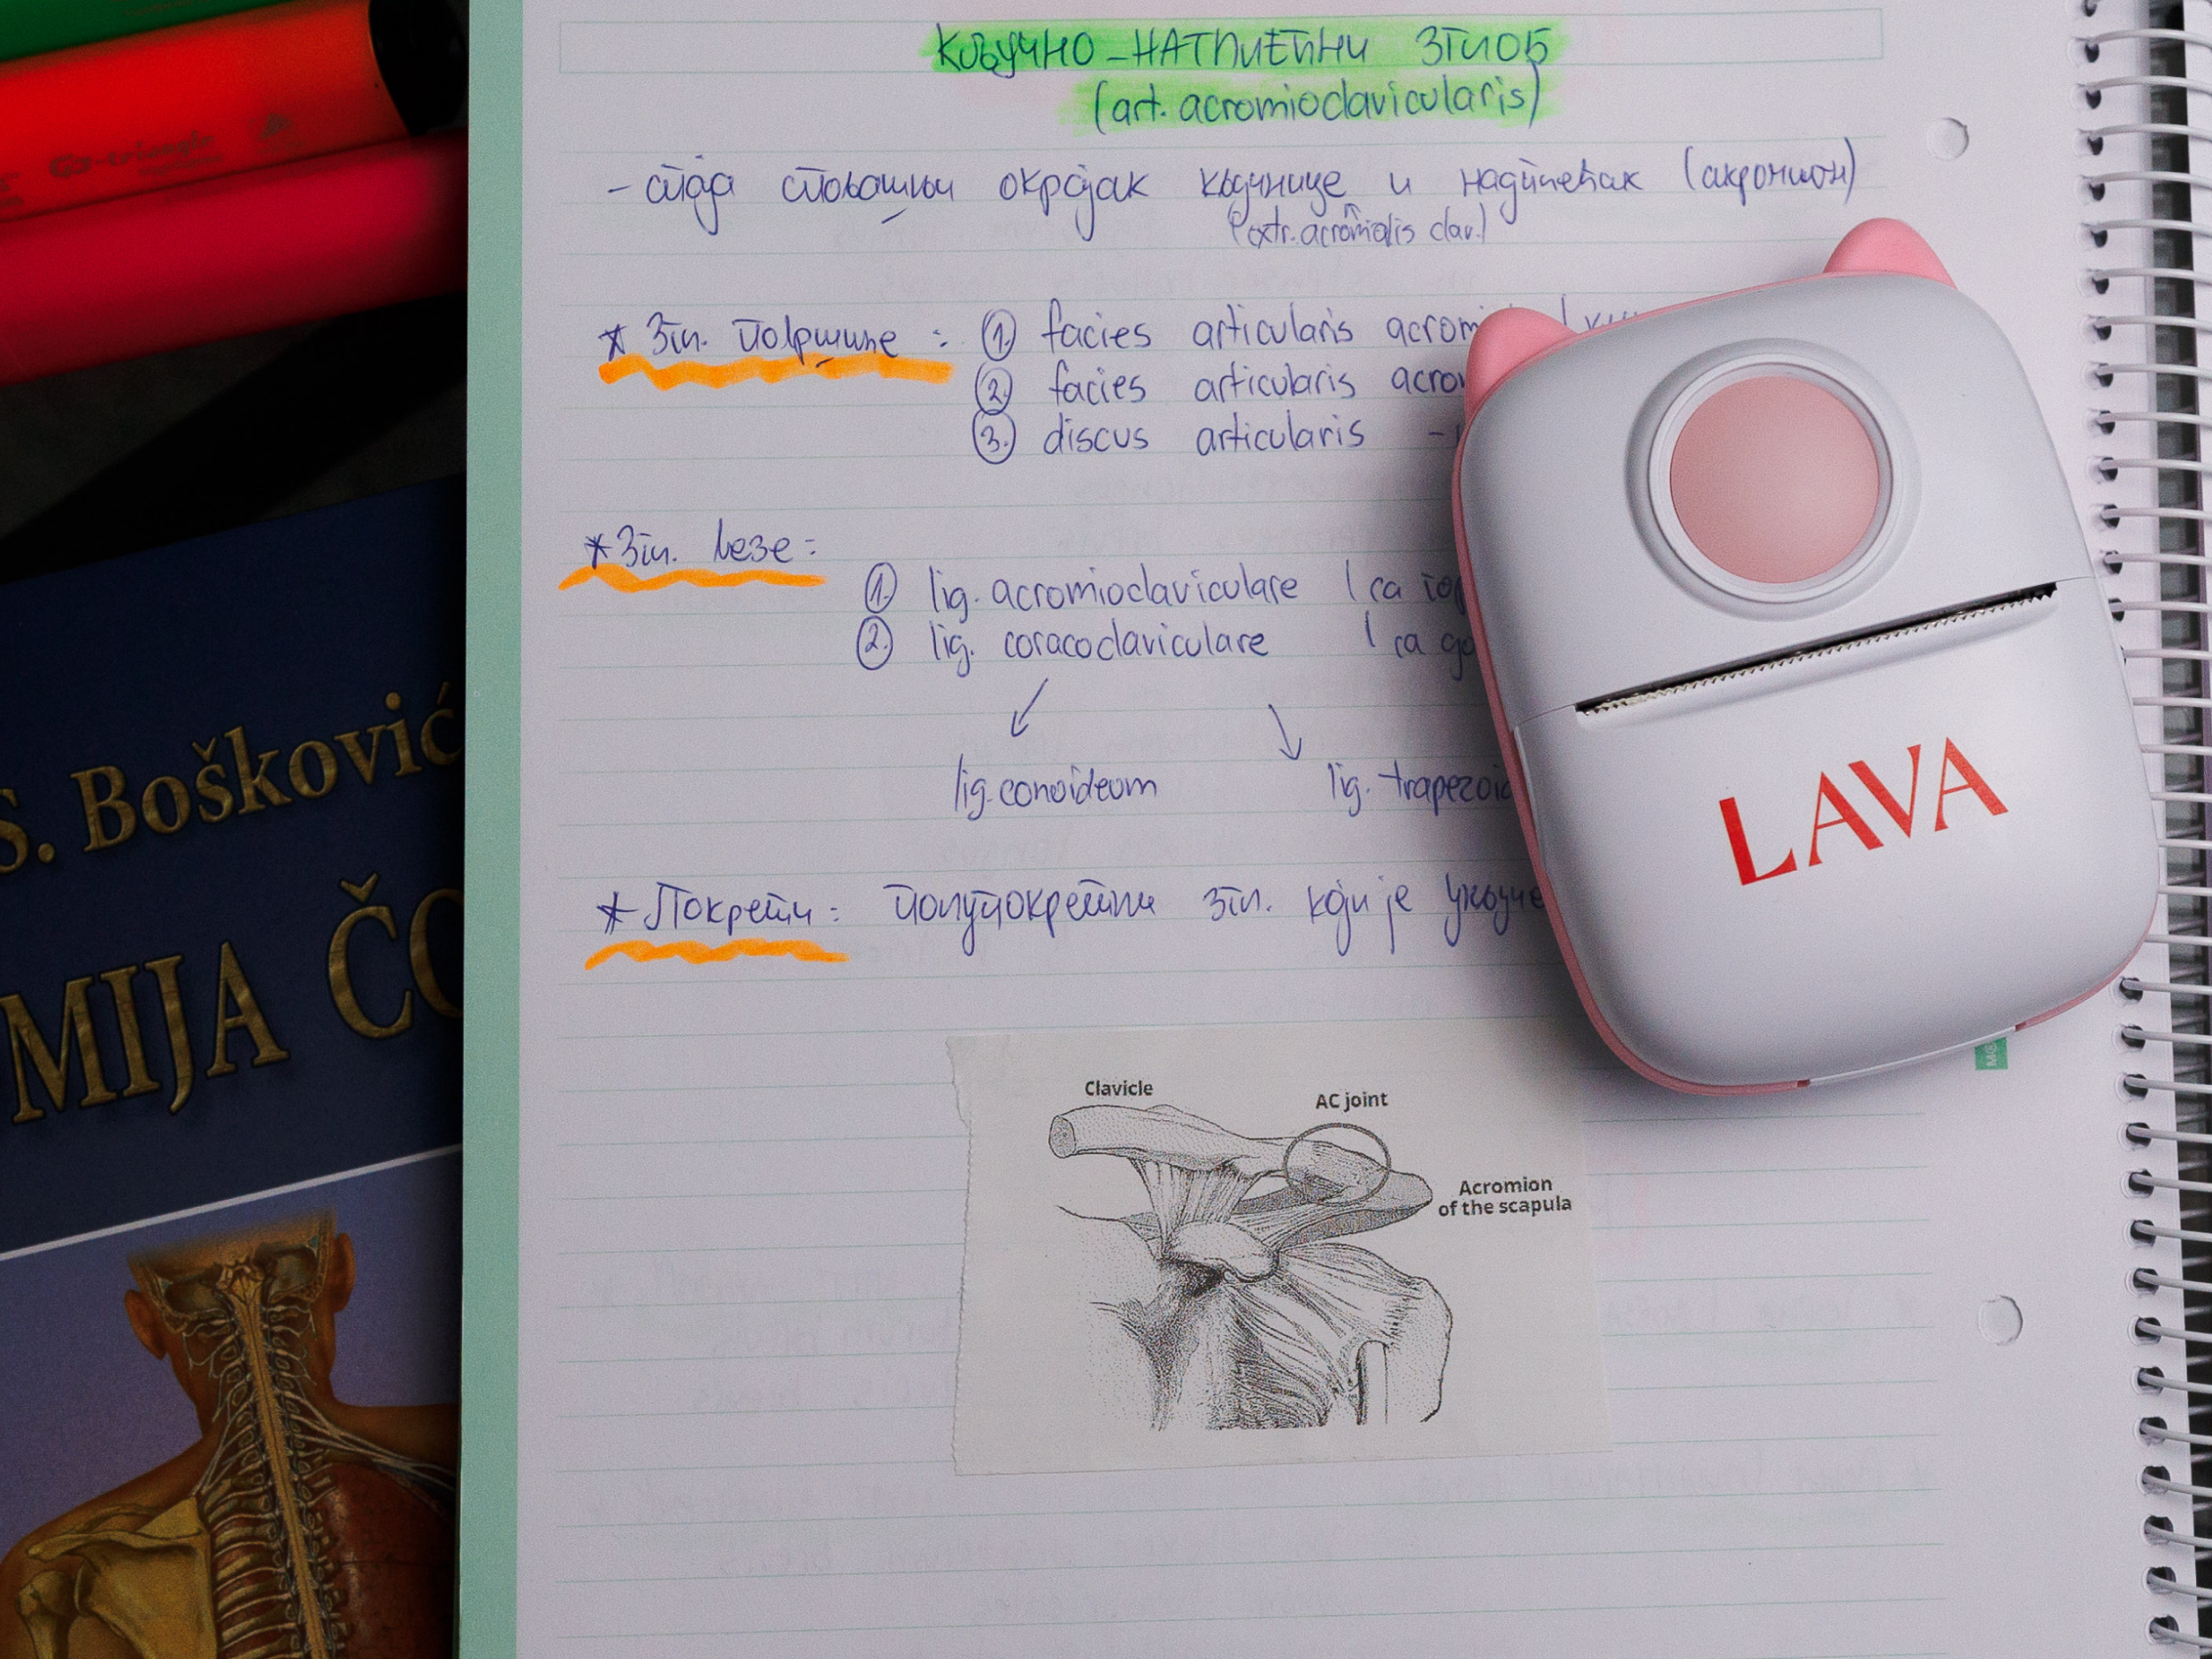 КЉУЧНО-НАТПЛЕЋНИ ЗГЛОБ
(art. acromioclavicularis)
- спаја спољашњи окрајак кључнице и надплећак (акромион)
(extr. acromialis clav.)
* Згл. површине: 1. facies articularis acromi
2. facies articularis acrom
3. discus articularis -
* Згл. везе:
1. lig. acromioclaviculare ( са гор
2. lig. coracoclaviculare ( са до
lig. conoideum lig. trapezoid
* Покрети: полупокретни згл. који је укључе
Clavicle
AC joint
Acromion
of the scapula
LAVA
S. Bošković
MIJA ČO